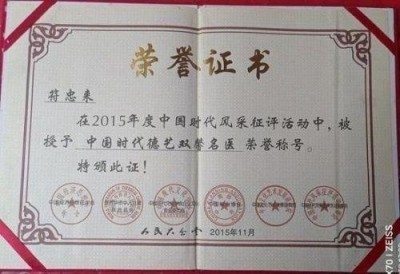 荣誉证书
符忠来
在2015年度中国时代风采征评活动中，被
授予 中国时代德艺双馨名医 荣誉称号。
特颁此证！
人民大会堂 2015年11月
X70 | ZEISS